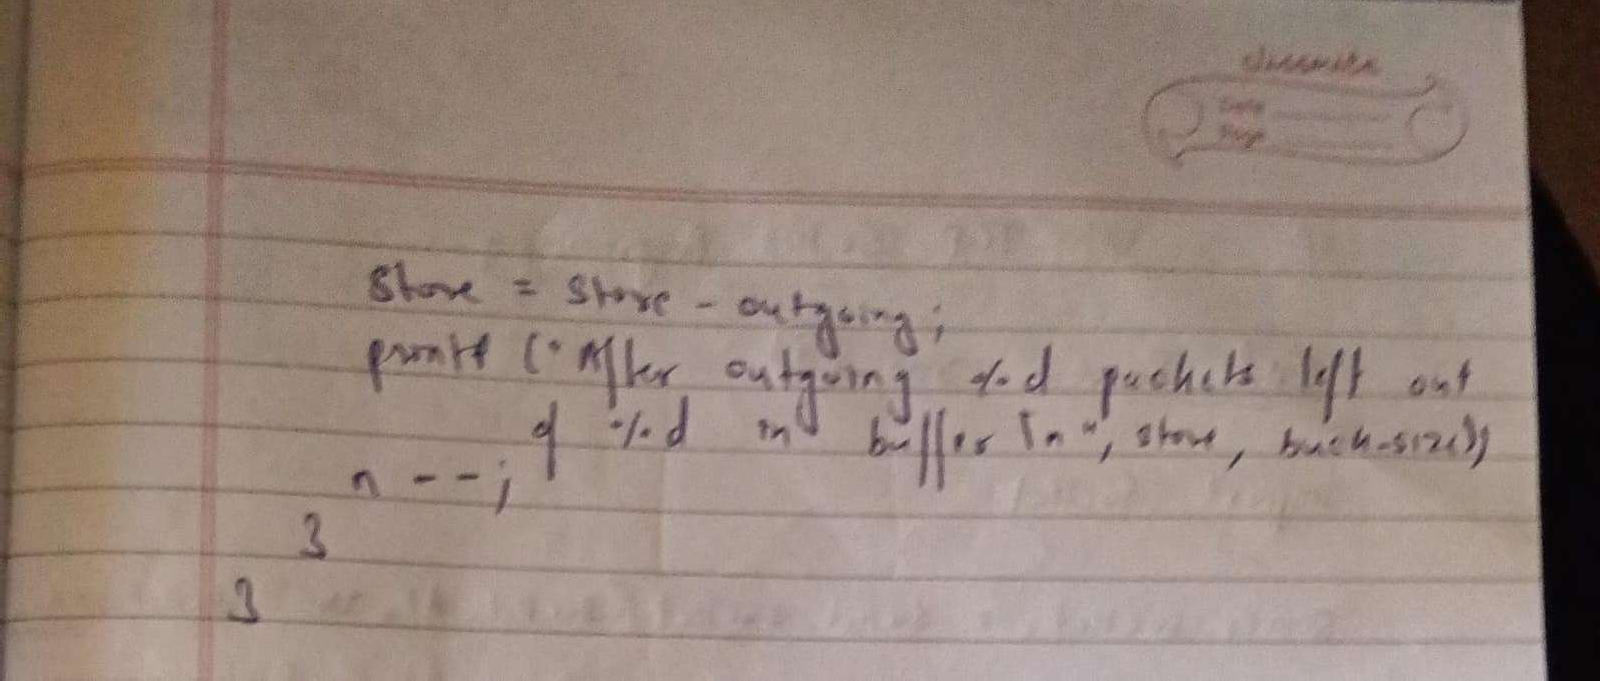 classmate
Date
Page
store = store - outgoing;
printf ("After outgoing %d packets left out
of %d in buffer \n", store, buck-size);
n--;
}
}